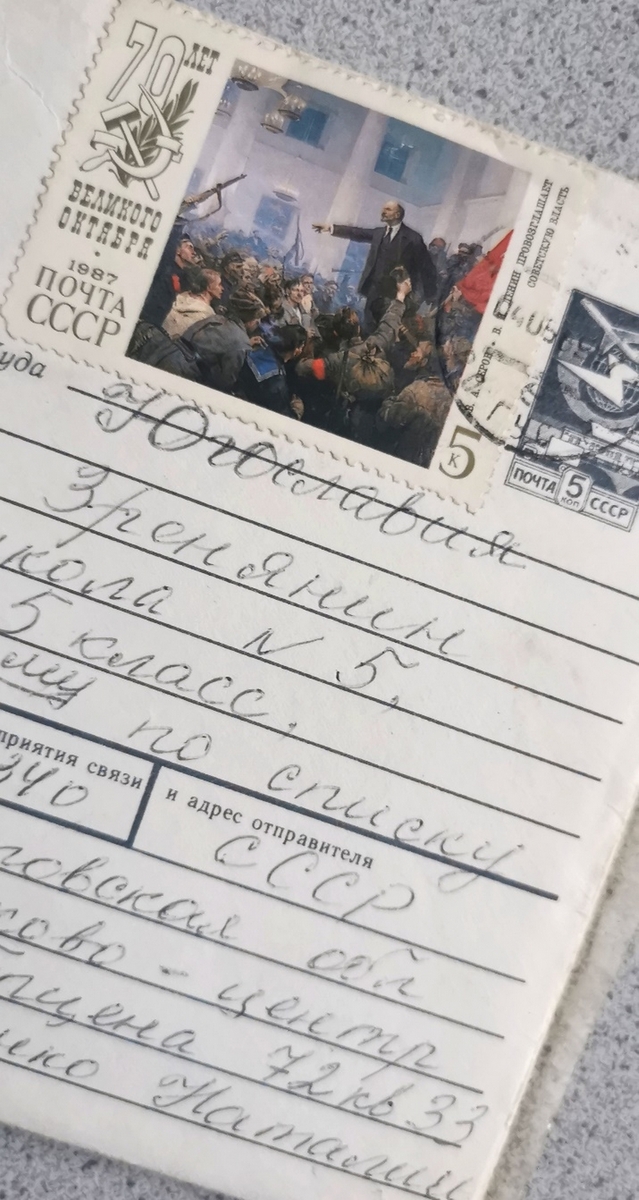 70 ЛЕТ
ВЕЛИКОГО
ОКТЯБРЯ
1987
ПОЧТА
СССР
ЛЕНИН ПРОВОЗГЛАШАЕТ
СОВЕТСКУЮ ВЛАСТЬ
5
К
ПОЧТА 5 КОП СССР
уда
Югославия
Зренянин
кола N 5,
5 класс,
ому по списку
приятия связи
340
и адрес отправителя
СССР
овская обл
ково-центр
72 кв 33
нко Наталии